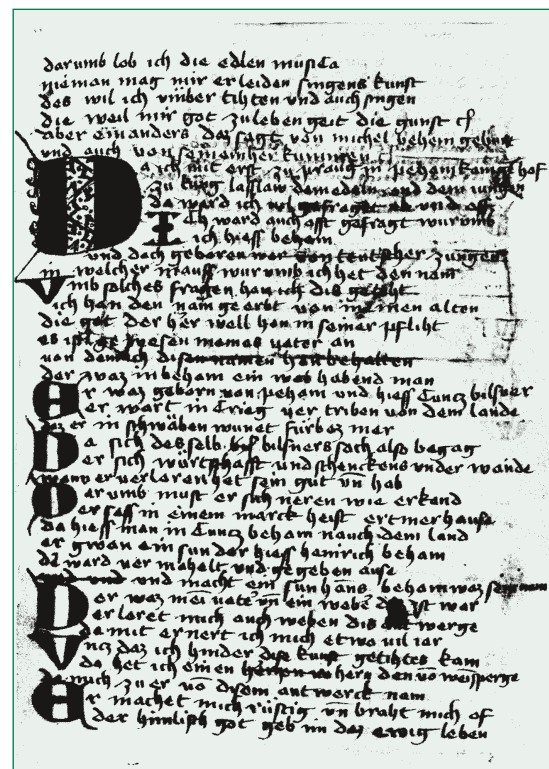 darumb lob ich die edlen musica
nieman mag mir erleiden singens kunst
des wil ich vmber tihten vnd auch singen
die weil mir got zu leben geit die gunst
aber ein anders daz sagt von michel behem geburt
vnd auch von seinem her kummen
Da ich mit erst zu praug in pehem kam ze hof
zu kung lasslaw dem edeln vnd dem iungen
da ward ich vil gefraget vnd oft
Ich ward auch offt gefragt wurumb
ich hiess behem
vnd doch geboren wer von teutscher zungen
in welcher wurumb ich het den nam
Vmb solches fragen han ich dis getiht
ich han den nam geerbt von meinen alten
die got der her well hon in seiner pfliht
es ist gewesen meines vater an
von dem ich disen namen hon behalten
der waz in beham ein wol habend man
Er waz geborn von peham vnd hiess Cuncz bilsner
er wart in krieg ver triben von dem lande
er in schwäben wunet fürbaz mer
Da sich desselb bilsners sach also begag
er sich würtschafft vnd schenckens vnder wande
wann er verloren het sein gut vn hab
Darumb must er sich neren wie er kend
er sass in einem marck heist ertmerhause
da hiess man in Cuncz beham nauch dem land
er gwan ein sun der hiess heinrich beham
der ward ver mahelt vnd gegeben ause
vnd macht ein sun hans beham waz sein nam
Der waz mei vater vn ein weber dez ist war
er leret mich auch weben dis ant werge
da mit er nert ich mich etwo vil iar
Vncz daz ich hinder die kunst getihtes kam
da het ich einen herren von weinsperge
der mich zu er vo disem antwerck nam
Er machet mich rüstig vn braht mich of
der himlisch got geb im daz ewig leben